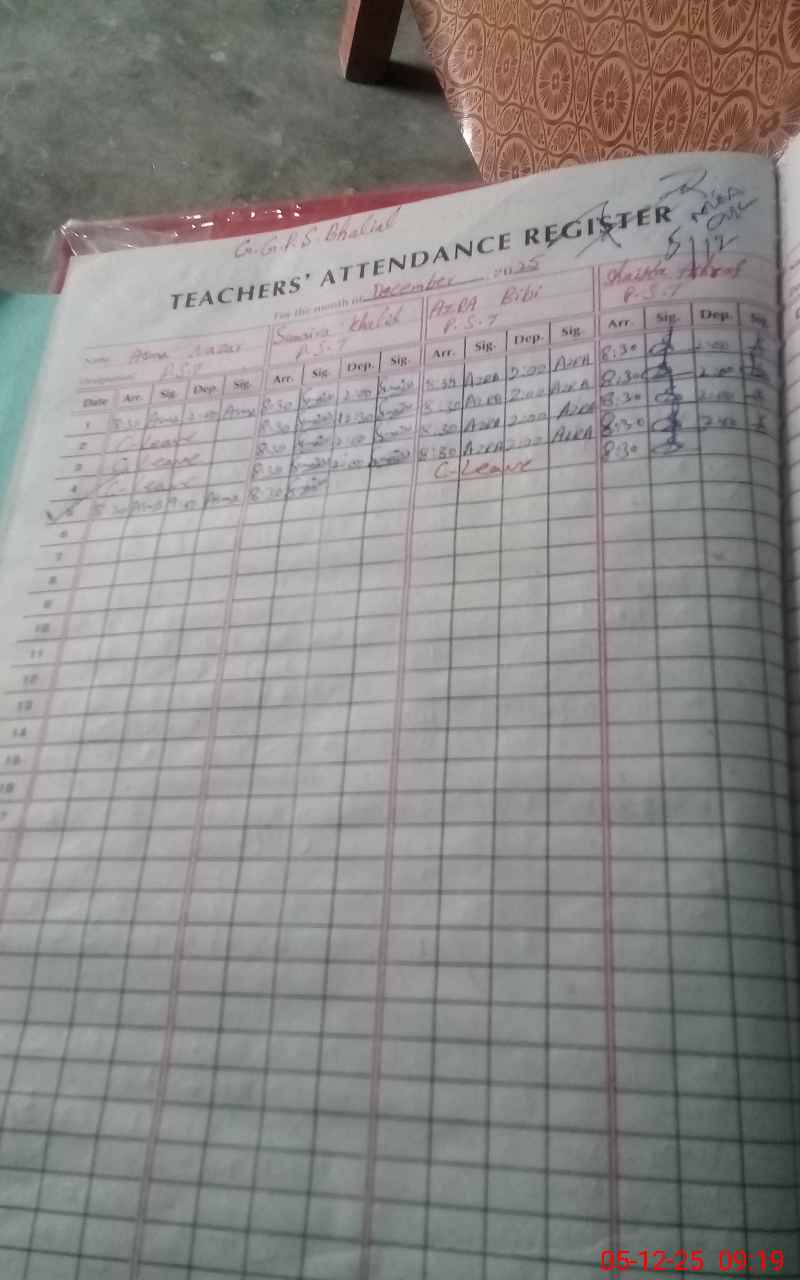 G.G.P.S Bhalial
TEACHERS' ATTENDANCE REGISTER
For the month of December 2025
Name Asma Nazar Khalid AZRA Bibi
Designation P.S.T P.S.T P.S.T P.S.T
5/12
Date Arr. Sig. Dep. Sig. Arr. Sig. Dep. Sig. Arr. Sig. Dep. Sig. Arr. Sig. Dep. Sig.
1 8:30 Asma 2:00 Asma 8:30 2:00 8:30 AZRA 2:00 AZRA 8:30 2:00
2 C-Leave 8:30 12:30 8:30 AZRA 2:00 AZRA 8:30 2:00
3 C-Leave 8:30 2:00 8:30 AZRA 2:00 AZRA 8:30 2:00
4 C-Leave 8:30 2:00 8:30 AZRA 2:00 AZRA 8:30 2:00
5 8:30 Asma Asma 8:30 C-Leave 8:30
6
7
8
9
10
11
12
13
14
15
16
7
05-12-25 09:19